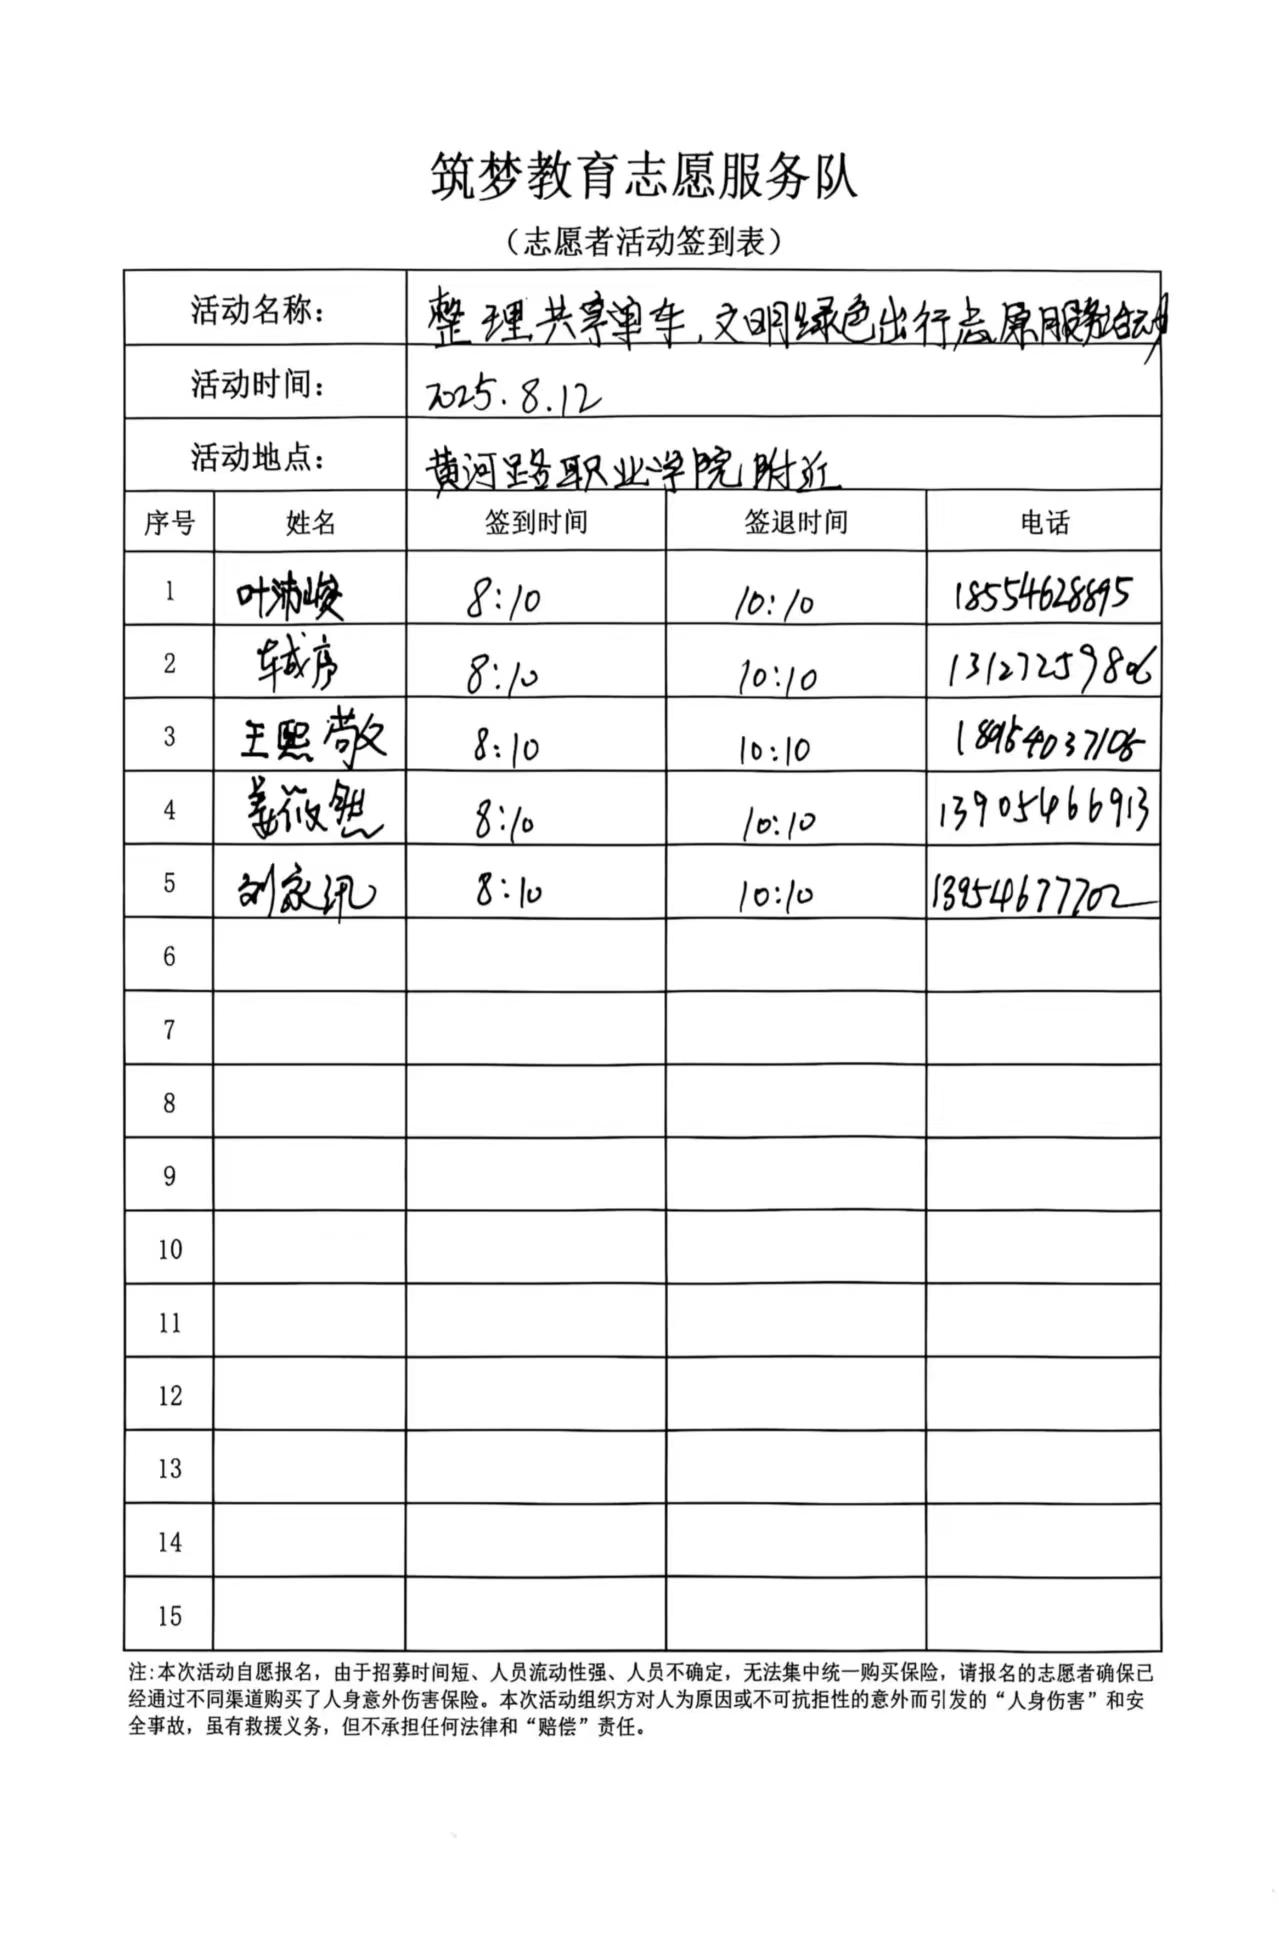 筑梦教育志愿服务队
（志愿者活动签到表）
活动名称： 整理共享单车，文明绿色出行志愿服务活动
活动时间： 2025.8.12
活动地点： 黄河路职业学院附近
序号 姓名 签到时间 签退时间 电话
1 叶沛峻 8:10 10:10 18554628895
2 车成序 8:10 10:10 13127259806
3 王熙 8:10 10:10 18954037105
4 姜筱然 8:10 10:10 13905466913
5 刘家讯 8:10 10:10 13954677702
6
7
8
9
10
11
12
13
14
15
注：本次活动自愿报名，由于招募时间短、人员流动性强、人员不确定，无法集中统一购买保险，请报名的志愿者确保已
经通过不同渠道购买了人身意外伤害保险。本次活动组织方对人为原因或不可抗拒性的意外而引发的“人身伤害”和安
全事故，虽有救援义务，但不承担任何法律和“赔偿”责任。